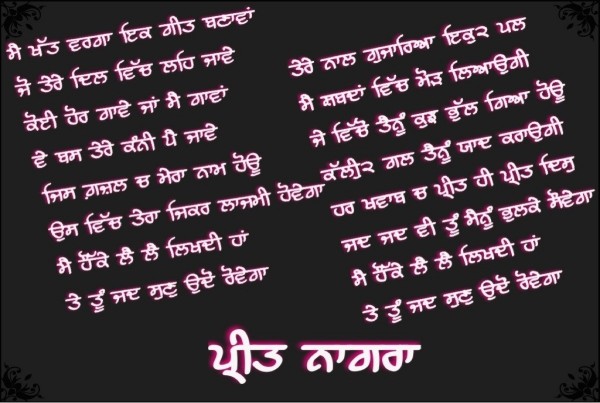 ਮੈਂ ਖੱਤ ਵਰਗਾ ਇਕ ਗੀਤ ਬਣਾਵਾਂ
ਜੋ ਤੇਰੇ ਦਿਲ ਵਿੱਚ ਲਹਿ ਜਾਵੇ
ਕੋਈ ਹੋਰ ਗਾਵੇ ਜਾਂ ਮੈਂ ਗਾਵਾਂ
ਵੇ ਬਸ ਤੇਰੇ ਕੰਨੀ ਪੈ ਜਾਵੇ
ਜਿਸ ਗ਼ਜ਼ਲ ਚ ਮੇਰਾ ਨਾਮ ਹੋਊ
ਉਸ ਵਿੱਚ ਤੇਰਾ ਜਿਕਰ ਲਾਜਮੀ ਹੋਵੇਗਾ
ਮੈਂ ਹੌਂਕੇ ਲੈ ਲੈ ਲਿਖਦੀ ਹਾਂ
ਤੇ ਤੂੰ ਜਦ ਸੁਣੂ ਉਦੋਂ ਰੋਵੇਗਾ
ਤੇਰੇ ਨਾਲ ਗੁਜਾਰਿਆ ਇਕੁ੨ ਪਲ
ਮੈਂ ਸ਼ਬਦਾਂ ਵਿੱਚ ਮੋੜ ਲਿਆਉਗੀ
ਜੇ ਵਿੱਚੋਂ ਤੈਨੂੰ ਕੁਝ ਭੁੱਲ ਗਿਆ ਹੋਊ
ਕੱਲੀ੨ ਗਲ ਤੈਨੂੰ ਯਾਦ ਕਰਾਉਗੀ
ਹਰ ਖਵਾਬ ਚ ਪ੍ਰੀਤ ਹੀ ਪ੍ਰੀਤ ਦਿਸੂ
ਜਦ ਜਦ ਵੀ ਤੂੰ ਮੈਨੂੰ ਭੁਲਕੇ ਸੌਂਵੇਗਾ
ਮੈਂ ਹੌਂਕੇ ਲੈ ਲੈ ਲਿਖਦੀ ਹਾਂ
ਤੇ ਤੂੰ ਜਦ ਸੁਣੂ ਉਦੋਂ ਰੋਵੇਗਾ
ਪ੍ਰੀਤ ਨਾਗਰਾ